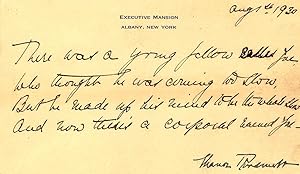 Aug 1st 1930
EXECUTIVE MANSION
ALBANY, NEW YORK
There was a young fellow called Joe
Who thought he was coming too slow,
But he made up his mind to be the whole show
And now this is a corporal named Joe